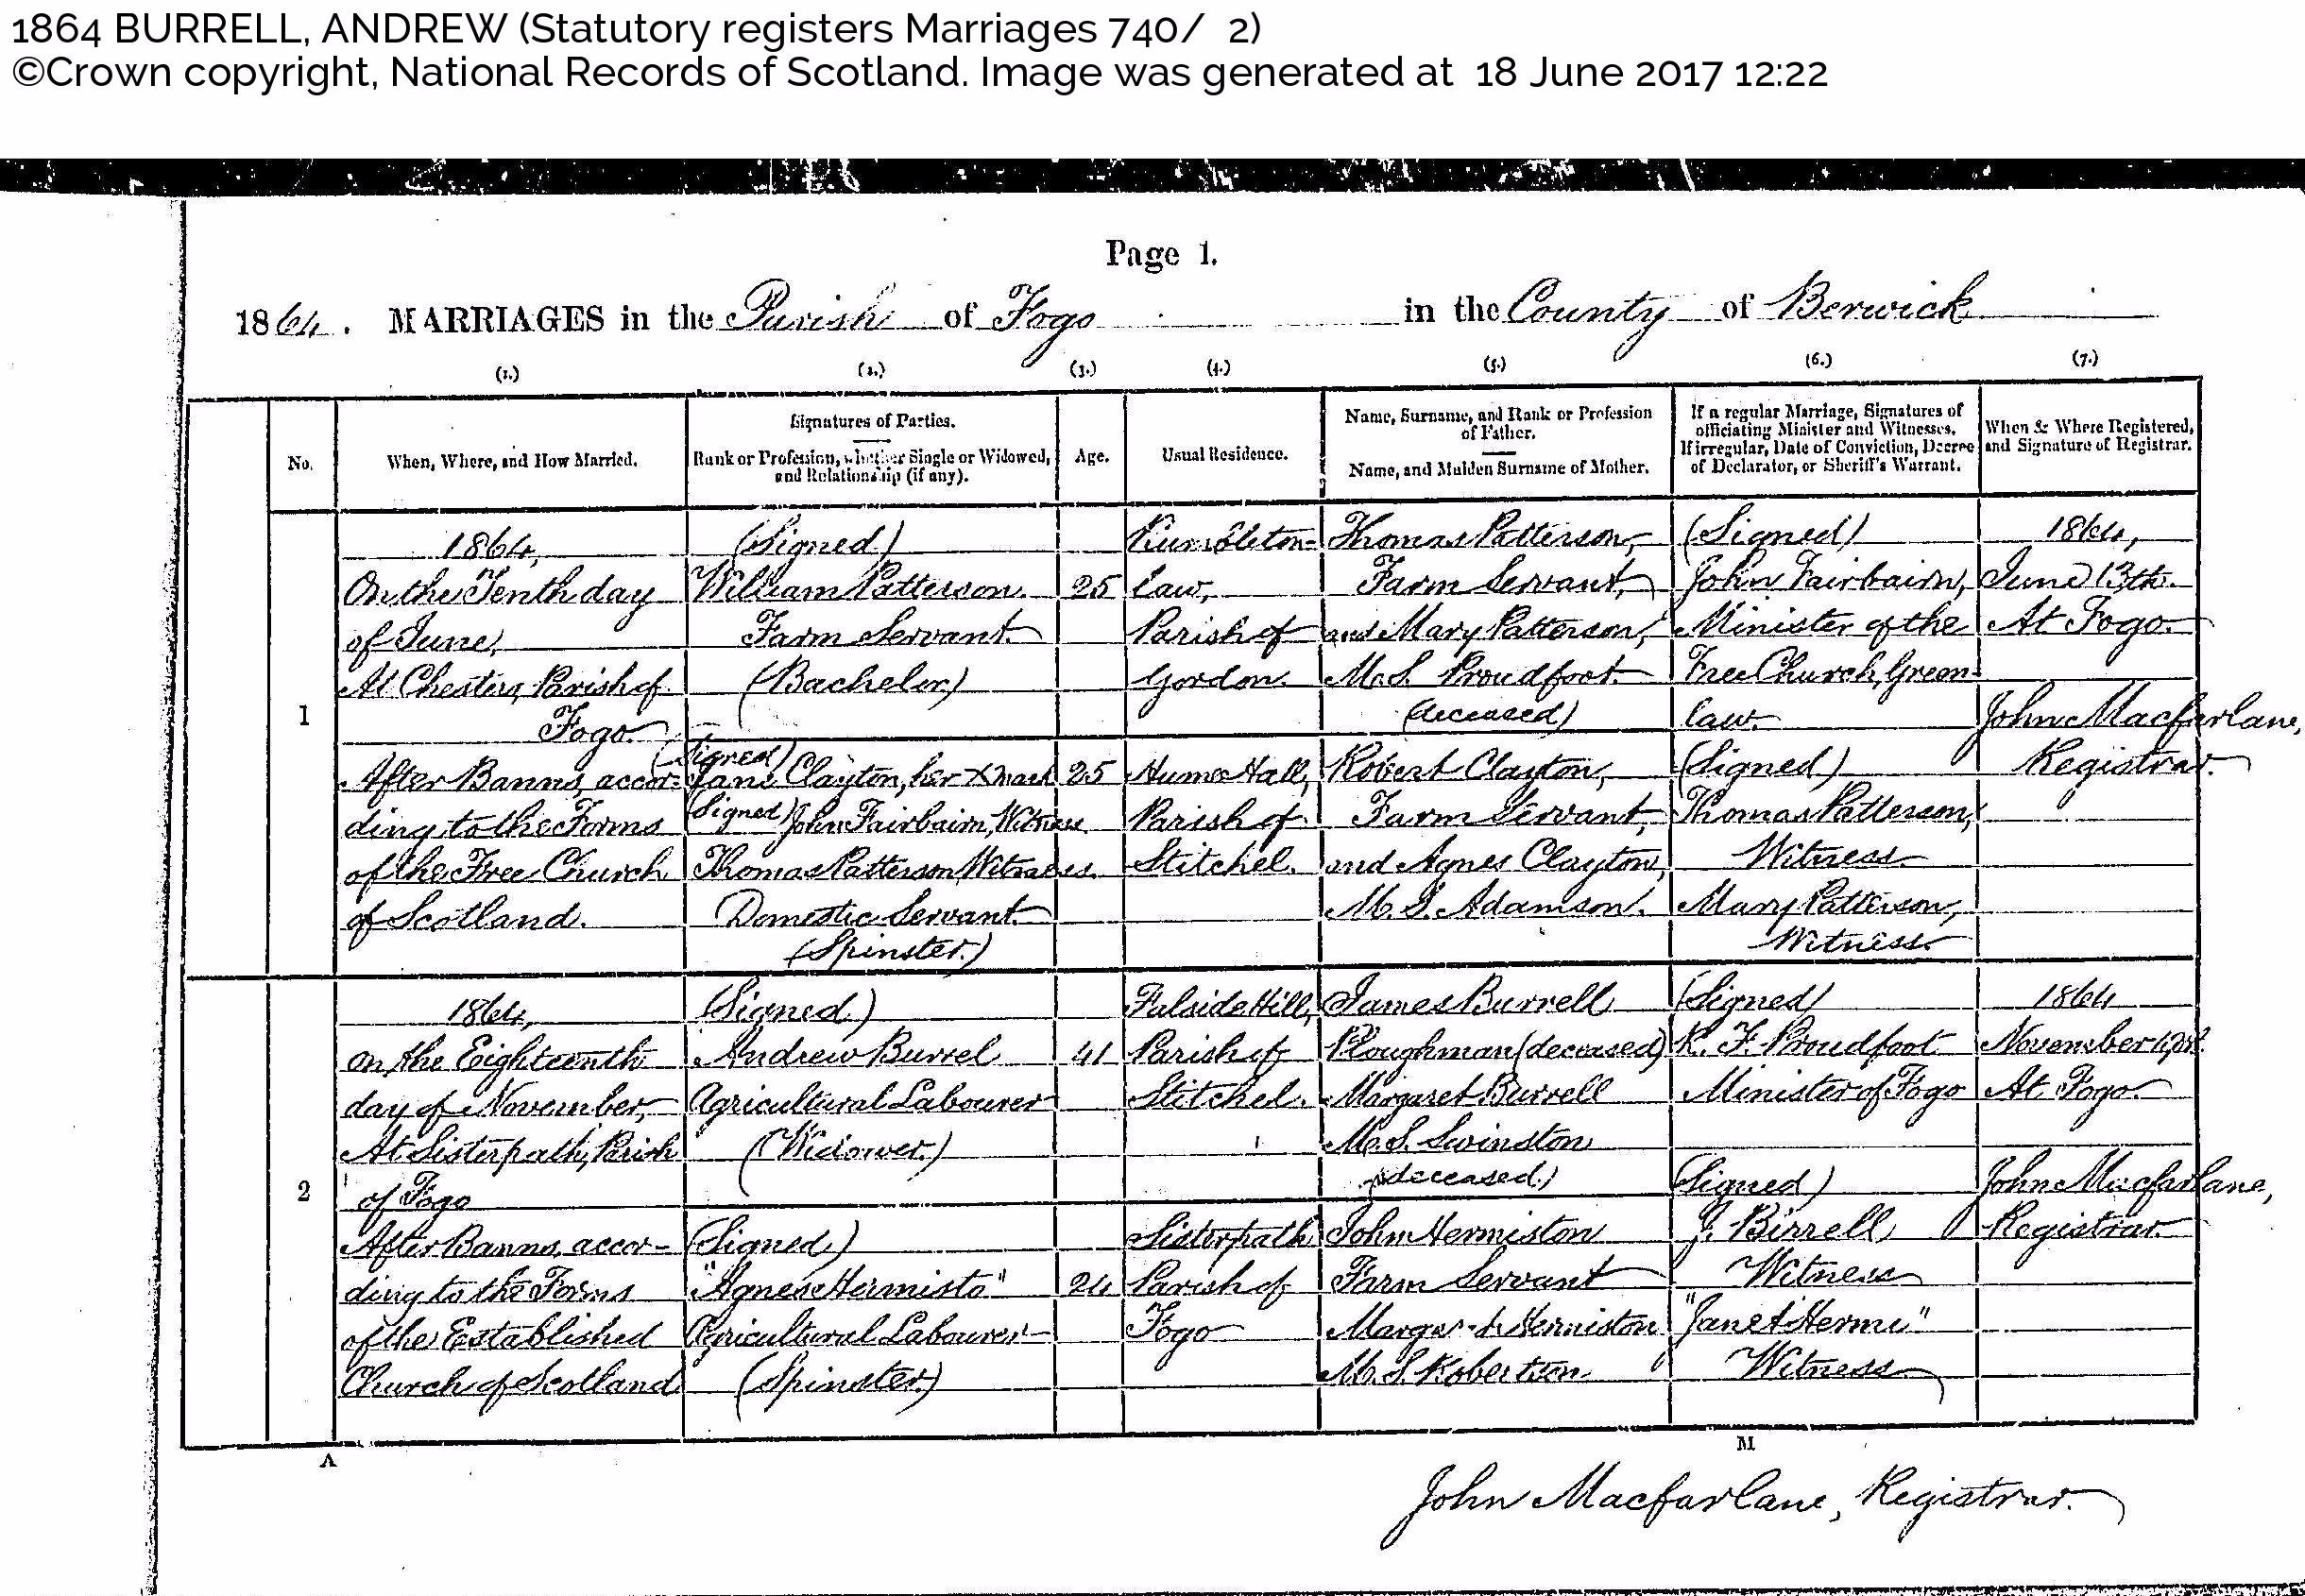 1864 BURRELL, ANDREW (Statutory registers Marriages 740/ 2)
©Crown copyright, National Records of Scotland. Image was generated at 18 June 2017 12:22
Page 1.
1864. MARRIAGES in the Parish of Fogo in the County of Berwick
(1.) (2.) (3.) (4.) (5.) (6.) (7.)
No.
When, Where, and How Married.
Signatures of Parties.
Rank or Profession, whether Single or Widowed,
and Relationship (if any).
Age.
Usual Residence.
Name, Surname, and Rank or Profession
of Father.
Name, and Maiden Surname of Mother.
If a regular Marriage, Signatures of
officiating Minister and Witnesses.
If irregular, Date of Conviction, Decree
of Declarator, or Sheriff's Warrant.
When & Where Registered,
and Signature of Registrar.
1
1864,
On the Tenth day
of June,
At Chesters, Parish of
Fogo.
After Banns, accor=
ding to the Forms
of the Free Church
of Scotland.
(Signed)
William Patterson.
Farm Servant.
(Bachelor)
(Signed)
Jane Clayton, her X mark
(Signed) John Fairbairn, Witness
Thomas Patterson, Witness.
Domestic Servant
(Spinster.)
25
25
Rumbleton-
law,
Parish of
Gordon.
Hume Hall,
Parish of
Stitchel.
Thomas Patterson,
Farm Servant,
and Mary Patterson,
M.S. Proudfoot.
(deceased)
Robert Clayton,
Farm Servant,
and Agnes Clayton,
M.S. Adamson.
(Signed)
John Fairbairn,
Minister of the
Free Church, Green-
law.
(Signed)
Thomas Patterson,
Witness
Mary Patterson,
Witness.
1864,
June 13th.
At Fogo.
John Macfarlane,
Registrar.
2
1864,
On the Eighteenth
day of November,
At Sisterpath, Parish
of Fogo
After Banns, accor-
ding to the Forms
of the Established
Church of Scotland
(Signed)
Andrew Burrel
Agricultural Labourer
(Widower.)
(Signed)
"Agnes Hermisto"
Agricultural Labourer
(Spinster)
41
24
Falside Hill,
Parish of
Stitchel.
Sisterpath
Parish of
Fogo
James Burrell
Ploughman (deceased)
Margaret Burrell
M.S. Swinston
(deceased.)
John Hermiston
Farm Servant
Margaret Hermiston
M.S. Robertson
(Signed)
R. F. Proudfoot
Minister of Fogo
(Signed)
J. Birrell
Witness
"Janet Hermi"
Witness
1864
November
At Fogo.
John Macfarlane,
Registrar.
A M
John Macfarlane, Registrar.